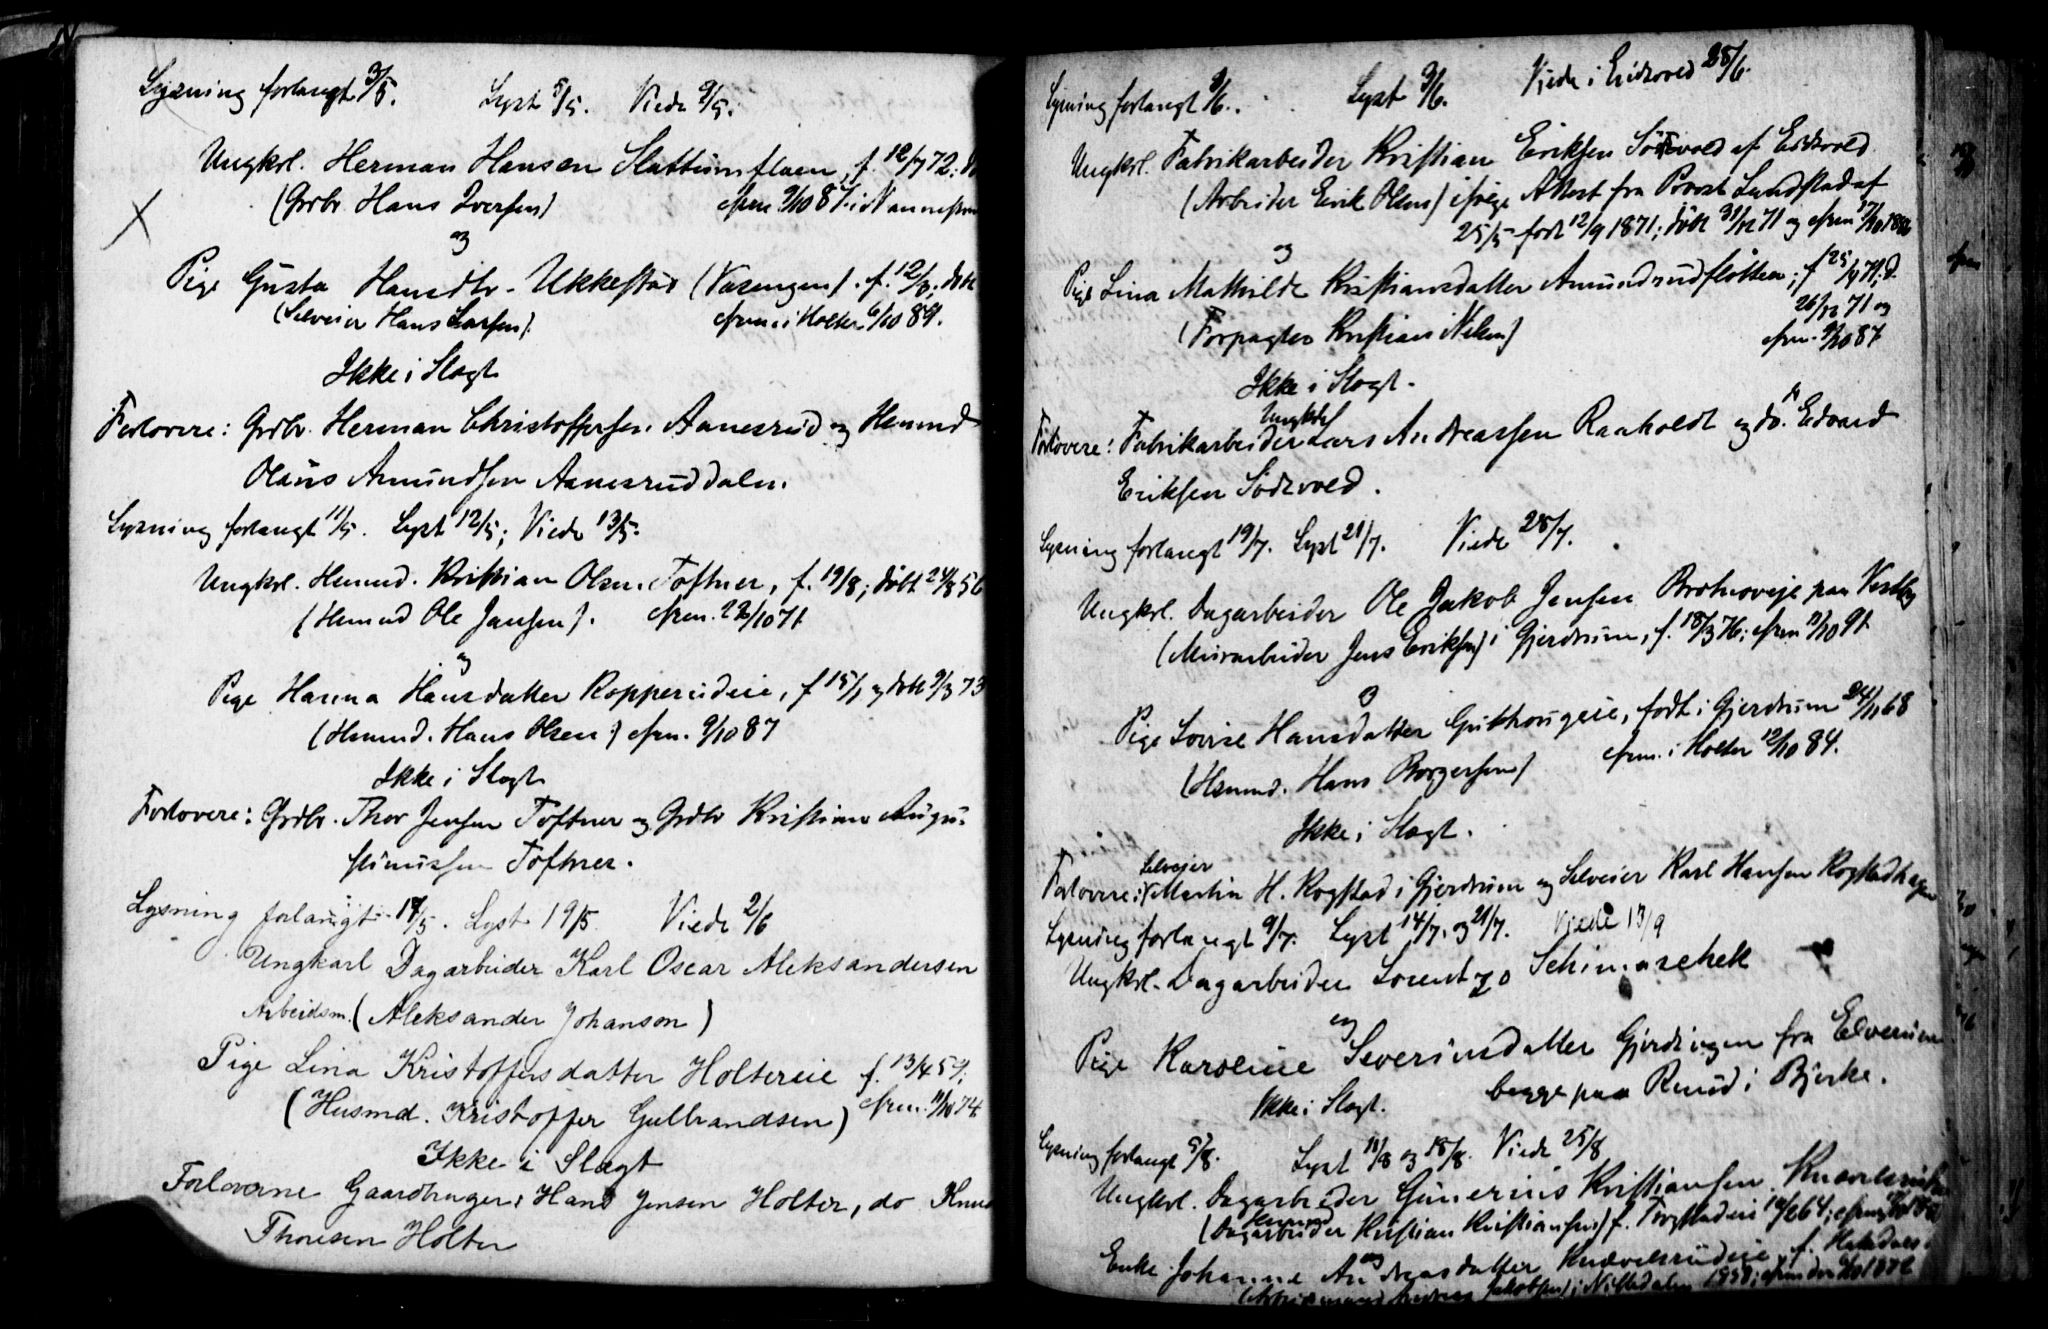 Lysning forlangt 3/5. Lyst 5/5. Viede 9/5.
Ungkrl. Herman Hansen Slattumflaen, f. 12/7 72;
(Grdbr. Hans Iversen)
og
Pige Gusta Hansdtr. Ukkestad (Vasengen). f. 12/3; døbt
(Selveier Hans Larsen). cfrm. i Holter 6/10 89.
Ikke i Slægt
Forlovere: Grdbr. Herman Christoffersen Aanesrud og Husmd
Olaus Amundsen Aanesruddalen.
Lysning forlangt 11/5. Lyst 12/5; Viede 13/5.
Ungkrl. Husmd. Kristian Olsen Toftner, f. 19/8; døbt 24/8 56
(Husmd Ole Jansen). cfrm. 22/10 71
og
Pige Hanna Hansdatter Kopperudeie, f 15/1 og døbt 9/3 73
(Husmd. Hans Olsen) cfrm. 9/10 87
Ikke i Slægt
Forlovere: Grdbr. Thor Jensen Toftner og Grdbr Kristian Augu-
stinussen Toftner.
Lysning forlangt 17/5. Lyst 19/5 Viede 2/6
Ungkarl Dagarbeider Karl Oscar Aleksandersen
Arbeidsm. (Aleksander Johanson)
Pige Lina Kristoffersdatter Holtereie f. 13/4 59;
(Husmd. Kristoffer Gulbrandsen) cfrm. 11/10 74
Ikke i Slægt
Forloverne Gaardbruger: Hans Jensen Holter, do Knud
Thoresen Holter
Lysning forlangt 8/6. Lyst 9/6. Viede i Eidsvold 28/6.
Ungkrl. Fabrikarbeider Kristian Eriksen Södsvold af Eidsvold
(Arbeider Erik Olsen) ifølge Attest fra Provst Lundstad af
25/5 født 12/9 1871; døbt 31/12 71 og cfrm 17/10 1886
og
Pige Lina Mathilde Kristiansdatter Amundrudfløtten; f 25/4 71; d.
26/12 71 og
(Forpagter Kristian Nilsen) cfrm. 9/10 87
Ikke i Slægt.
Ungkrl
Forlovere: Fabrikarbeider Lars Andreassen Raaholdt og do. Edvard
Eriksen Södsvold.
Lysning forlangt 19/7. Lyst 21/7. Viede 28/7.
Ungkrl. Dagarbeider Ole Jakob Jensen Brotnoveje paa Vestby
(Murarbeider Jens Eriksen) i Gjerdrum, f. 18/3 76; cfrm 11/10 91
og
Pige Lovise Hansdatter Gutthougeie, født i Gjerdrum 24/11 68
(Husmd. Hans Borgersen) cfrm. i Holter 12/10 84.
Ikke i Slægt.
Selveier
Forlovere: Martin H. Rogstad i Gjerdrum og Selveier Karl Hansen Rogstadhagen
Lysning forlangt 9/7. Lyst 14/7. og 21/7. Viede 13/9
Ungkrl. Dagarbeider Lorentzo Schimaschek
og
Pige Karoline Severinsdatter Gjerdingen fra Elverum
Ikke i Slægt. begge paa Ruud i Bjerke.
Lysning forlangt 5/8. Lyst 11/8 og 18/8. Viede 25/8
Ungkrl. Dagarbeider Gunerius Kristiansen
Husmd
(Dagarbeider Kristian Kristiansen) f.
og
Enke Johanne Andreasdatter Knævelsrudeie, f.
i Nittedalen